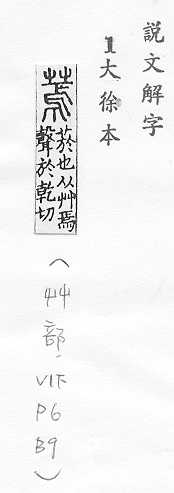 說文解字
1大徐本
蔫
菸也从艸焉
聲於乾切
(艸部, V1下 P6 B9)